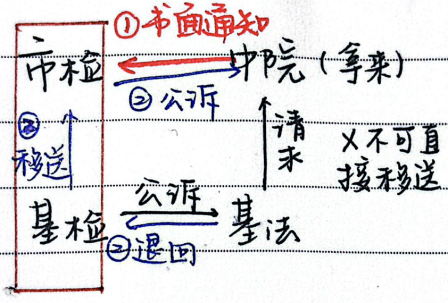 ①书面通知
市检 中院(拿来)
②公诉
③移送 请求 X不可直接移送
公诉
基检 基法
②退回